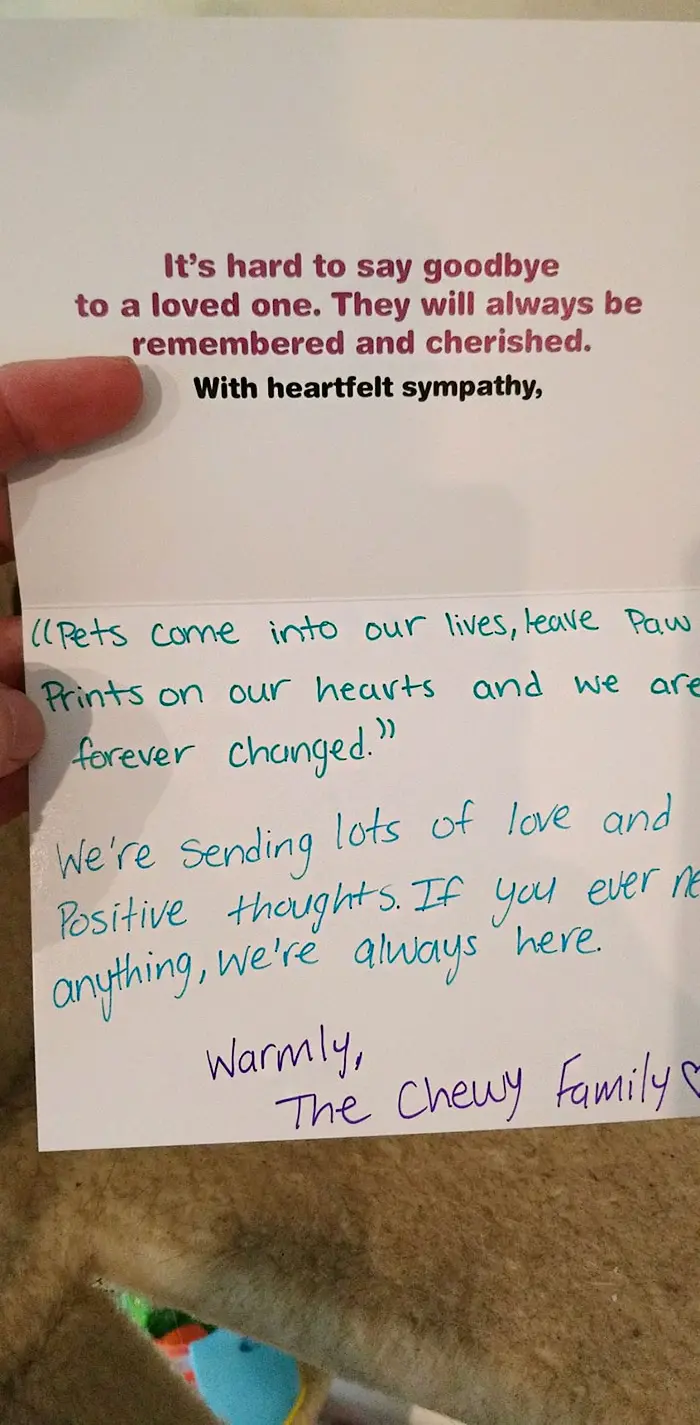 It's hard to say goodbye
to a loved one. They will always be
remembered and cherished.
With heartfelt sympathy,
"Pets come into our lives, leave Paw
Prints on our hearts and we are
forever changed."
We're sending lots of love and
Positive thoughts. If you ever
anything, we're always here.
Warmly,
The Chewy Family